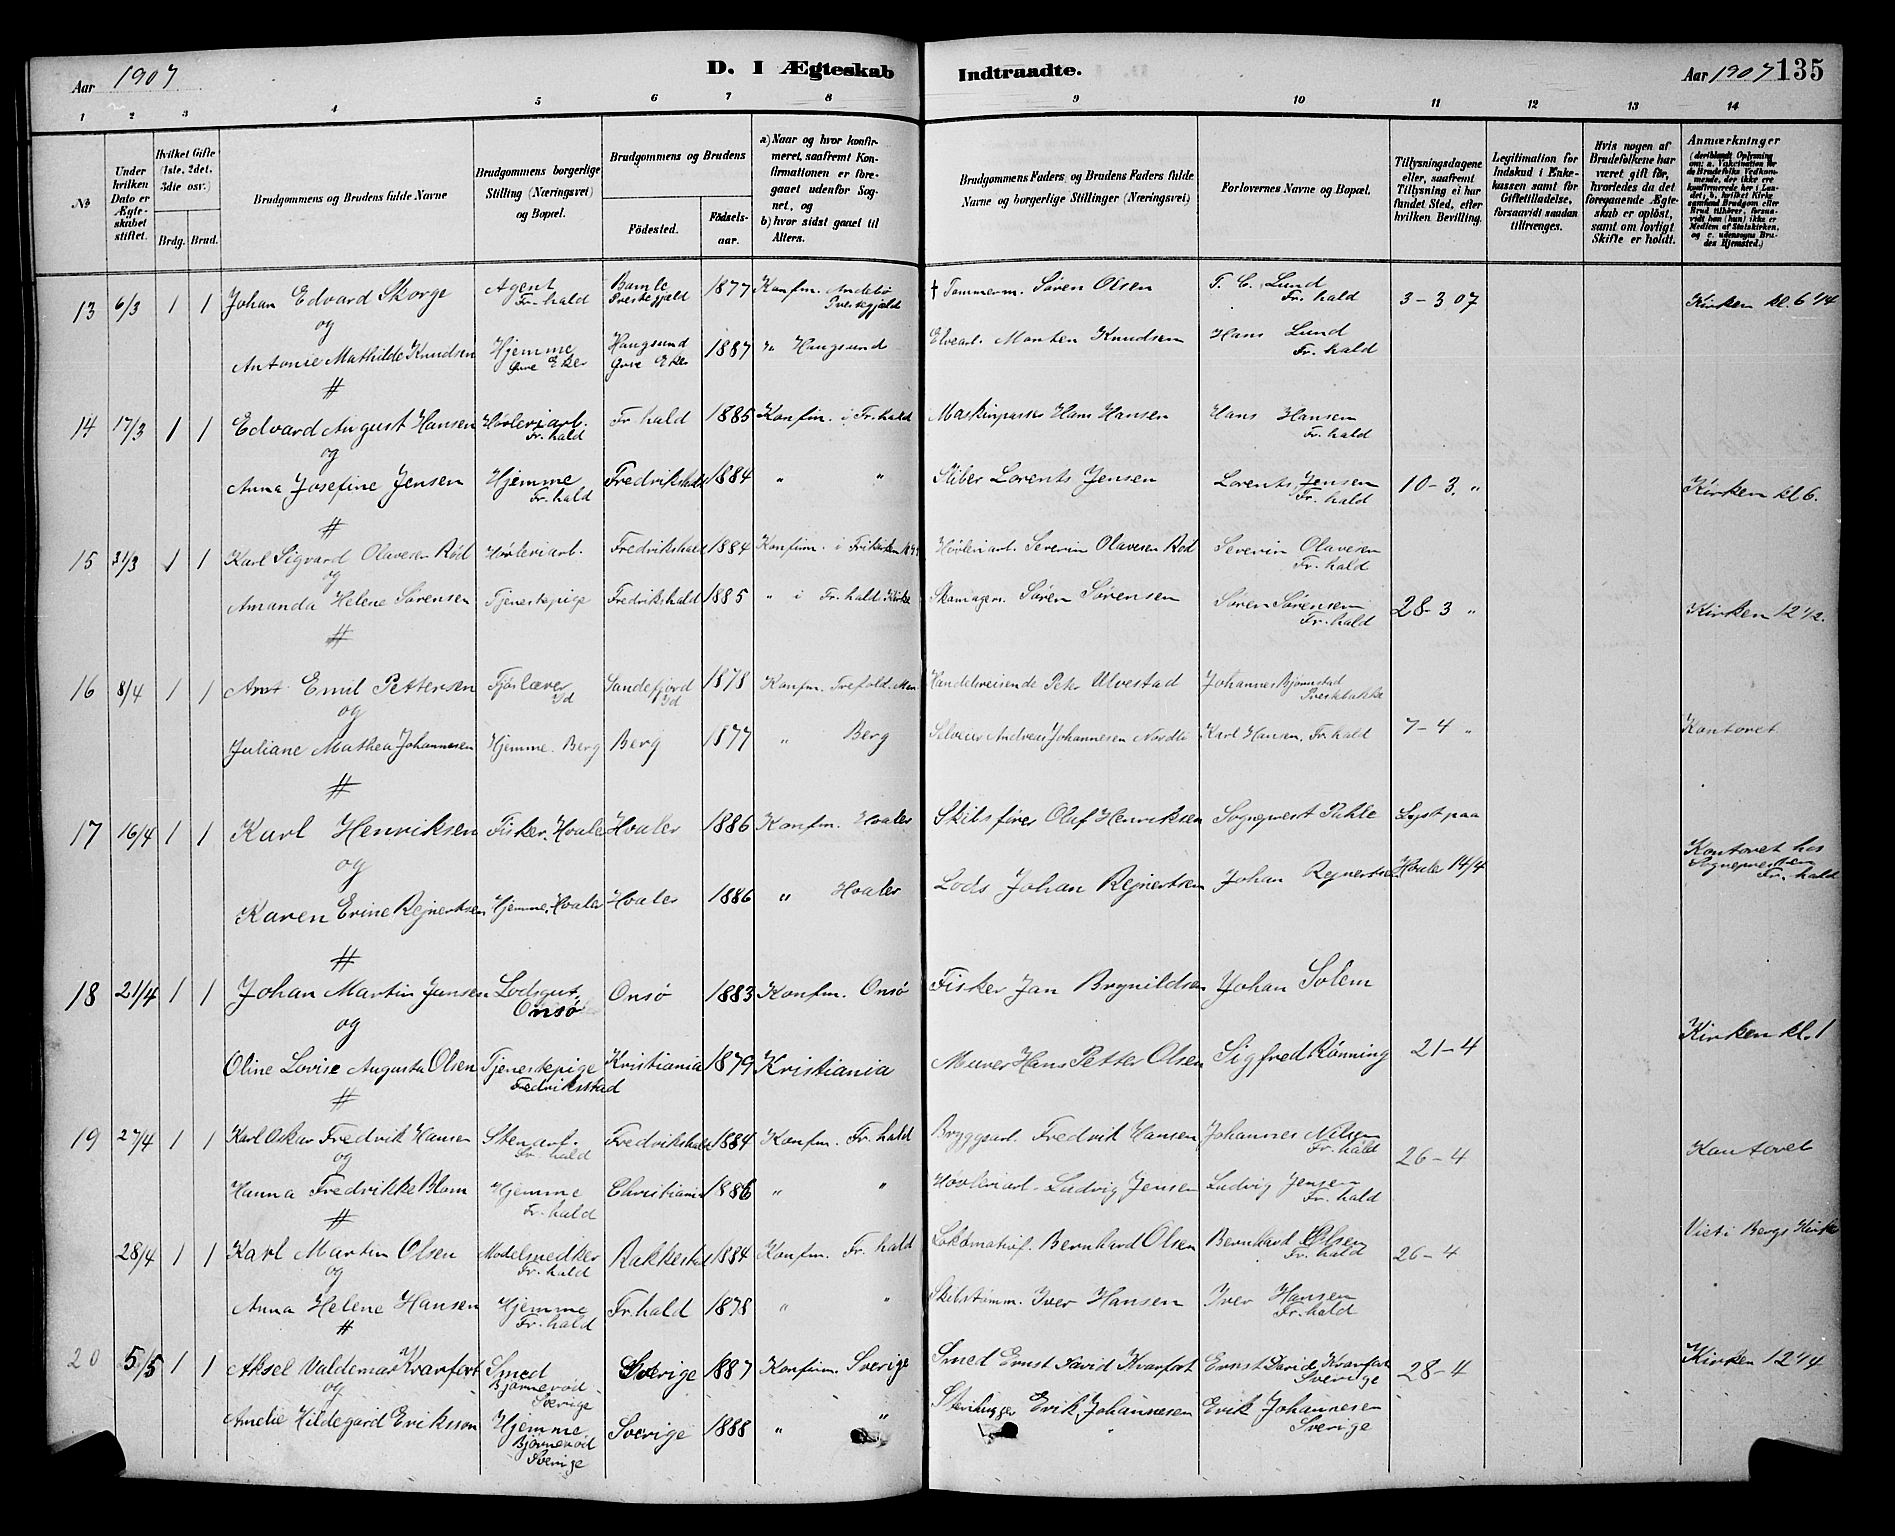 Aar 1907.
D. I Ægteskab Indtraadte.
Aar 1907 135
1 2 3 4 5 6 7 8 9 10 11 12 13 14
No
Under hvilken Dato er Ægteskabet stiftet.
Hvilket Gifte (1ste, 2det, 3die osv.)
Brdg. Brud.
Brudgommens og Brudens fulde Navne
Brudgommens borgerlige Stilling (Næringsvei) og Bopæl.
Brudgommens og Brudens
Födested.
Födselsaar.
a) Naar og hvor konfirmeret, saafremt Konfirmationen er foregaaet udenför Sognet, og
b) hvor sidst gaaet til Alters.
Brudgommens Faders, og Brudens Faders fulde Navne og borgerlige Stillinger (Næringsvei)
Forlovernes Navne og Bopæl.
Tillysningsdagene eller, saafremt Tillysning ei har fundet Sted, efter hvilken Bevilling.
Legitimation for Indskud i Enkekassen samt for Giftetilladelse, forsaavidt saadan tiltrænges.
Hvis nogen af Brudefolkene har været gift för, hvorledes da det foregaaende Ægteskab er oplöst, samt om lovligt Skifte er holdt.
Anmærkninger
(deriblandt Oplysning om: a. Vakcination for de Brudefolks Vedkommende, der ikke ere konfirmerede her i Landet, b. hvilket Kirkesamfund Brudgom eller Brud tilhører, forsaavidt han (hun) ikke er Medlem af Statskirken, og c. udensogns Brudes Hjemsted.)
13 6/3 1 1 Johan Edvard Skorge Agent Fr. hald Bamle Prestegjeld 1877 Konfm. Andebø Prestegjæld † Tømmerm. Søren Olsen T. C. Lund Fr. hald 3-3 07 Kirken kl. 6 1/4
og
Antonie Mathilde Knudsen Hjemme Øvre Eker Haugsund Øvre Eker 1887 " Haugsund Elvearb. Morten Knudsen Hans Lund Fr. hald
#
14 17/3 1 1 Edvard August Hansen Høvleriarb. Fr. hald Fr. hald 1885 Konfm. i Fr. hald Maskinpasser Hans Hansen Hans Hansen Fr. hald
og
Anna Josefine Jensen Hjemme Fr. hald Fredrikshald 1884 " " Sliber Lorents Jensen Lorents Jensen Fr. hald 10-3. " Kirken kl 6.
#
15 31/3 1 1 Karl Sigvard Olavesen Röd Høvleriarb. Fredrikshald 1884 Konfirm. i Frikirken Høvleriarb. Severin Olavesen Röd Severin Olavesen Fr. hald
og
Amanda Helene Sørensen Tjenestepige Fredrikshald 1885 " i Fr. hald Kirke Skomagerm. Søren Sørensen Søren Sørensen Fr. hald 28-3 " Kirken 12 1/2.
#
16 8/4 1 1 Arnt Emil Pettersen Id Sandefjord Id 1878 Konfm. Trefold. Men Handelsreisende Peter Ulvestad Johannes Bjørnstad Prestebakke
og
Juliane Mathea Johannesen Hjemme. Berg Berg 1877 " Berg Selveier Andreas Johannesen Karl Hansen. Fr. hald 7-4 " Kontoret
#
17 16/4 1 1 Karl Henriksen Fisker. Hvaler Hvaler 1886 Konfm. Hvaler Skibsfører Olaf Henriksen Sogneprest Pahle Lyst paa
og
Karen Erine Rejnertsen Hjemme, Hvaler Hvaler 1886 " Hvaler Lods Johan Rejnertsen Johan Rejnertsen Hvaler 14/4 Kontoret hos Sognepresten Fr. hald
#
18 21/4 1 1 Johan Martin Jansen Lodsgut, Onsø Onsø 1883 Konfm. Onsø Fisker Jan Brynildsen Johan Solem
og
Oline Lovise Augusta Olsen Tjenestepige Fredriksstad Kristiania 1879 Kristiania Murer Hans Petter Olsen Sigfred Rönning 21-4 Kirken kl. 1
#
19 27/4 1 1 Karl Oskar Fredrik Hansen Stenarb. Fr. hald Fredrikshald 1884 Konfm. Fr. hald Bryggearb. Fredrik Hansen Johannes Nilsen Fr. hald 26-4 Kontoret
og
Hanna Fredrikke Blom Hjemme Fr. hald Christiania 1886 " " Høvleriarb. Ludvig Jensen Ludvig Jensen Fr. hald
#
28/4 1 1 Karl Martin Olsen Modelsnedker Fr. hald Rakkestad 1884 Konfm. Fr. hald Lokomotivf. Bernhard Olsen Bernhard Olsen Fr. hald 26-4 Viet i Bergs Kirke
og
Anna Helene Hansen Hjemme Fr. hald Fr. hald 1878 " " Skibstømm. Iver Hansen Iver Hansen Fr. hald
#
20 5/5 1 1 Aksel Valdemar Kvarfort Smed Bjørnerød Sverige Sverige 1887 Konfirm. Sverige Smed Ernst David Kvarfort Ernst David Kvarfort Sverige 28-4 Kirken 12 1/4
og
Amelie Hildegard Eriksson Hjemme, Bjørnerød Sverige Sverige 1888 " " Stenhugger Erik Johannesen Erik Johannesen Sverige